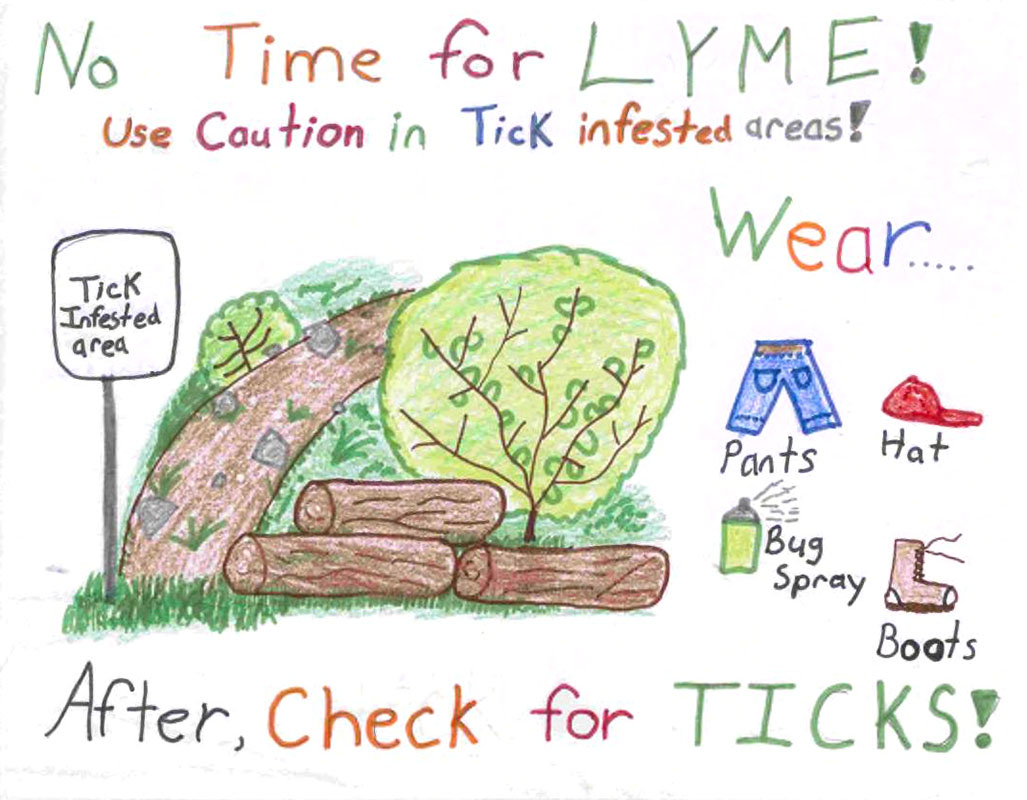 No Time for LYME!
Use Caution in Tick infested areas!
Wear.....
Tick
Infested
area
Pants
Hat
Bug
Spray
Boots
After, Check for TICKS!